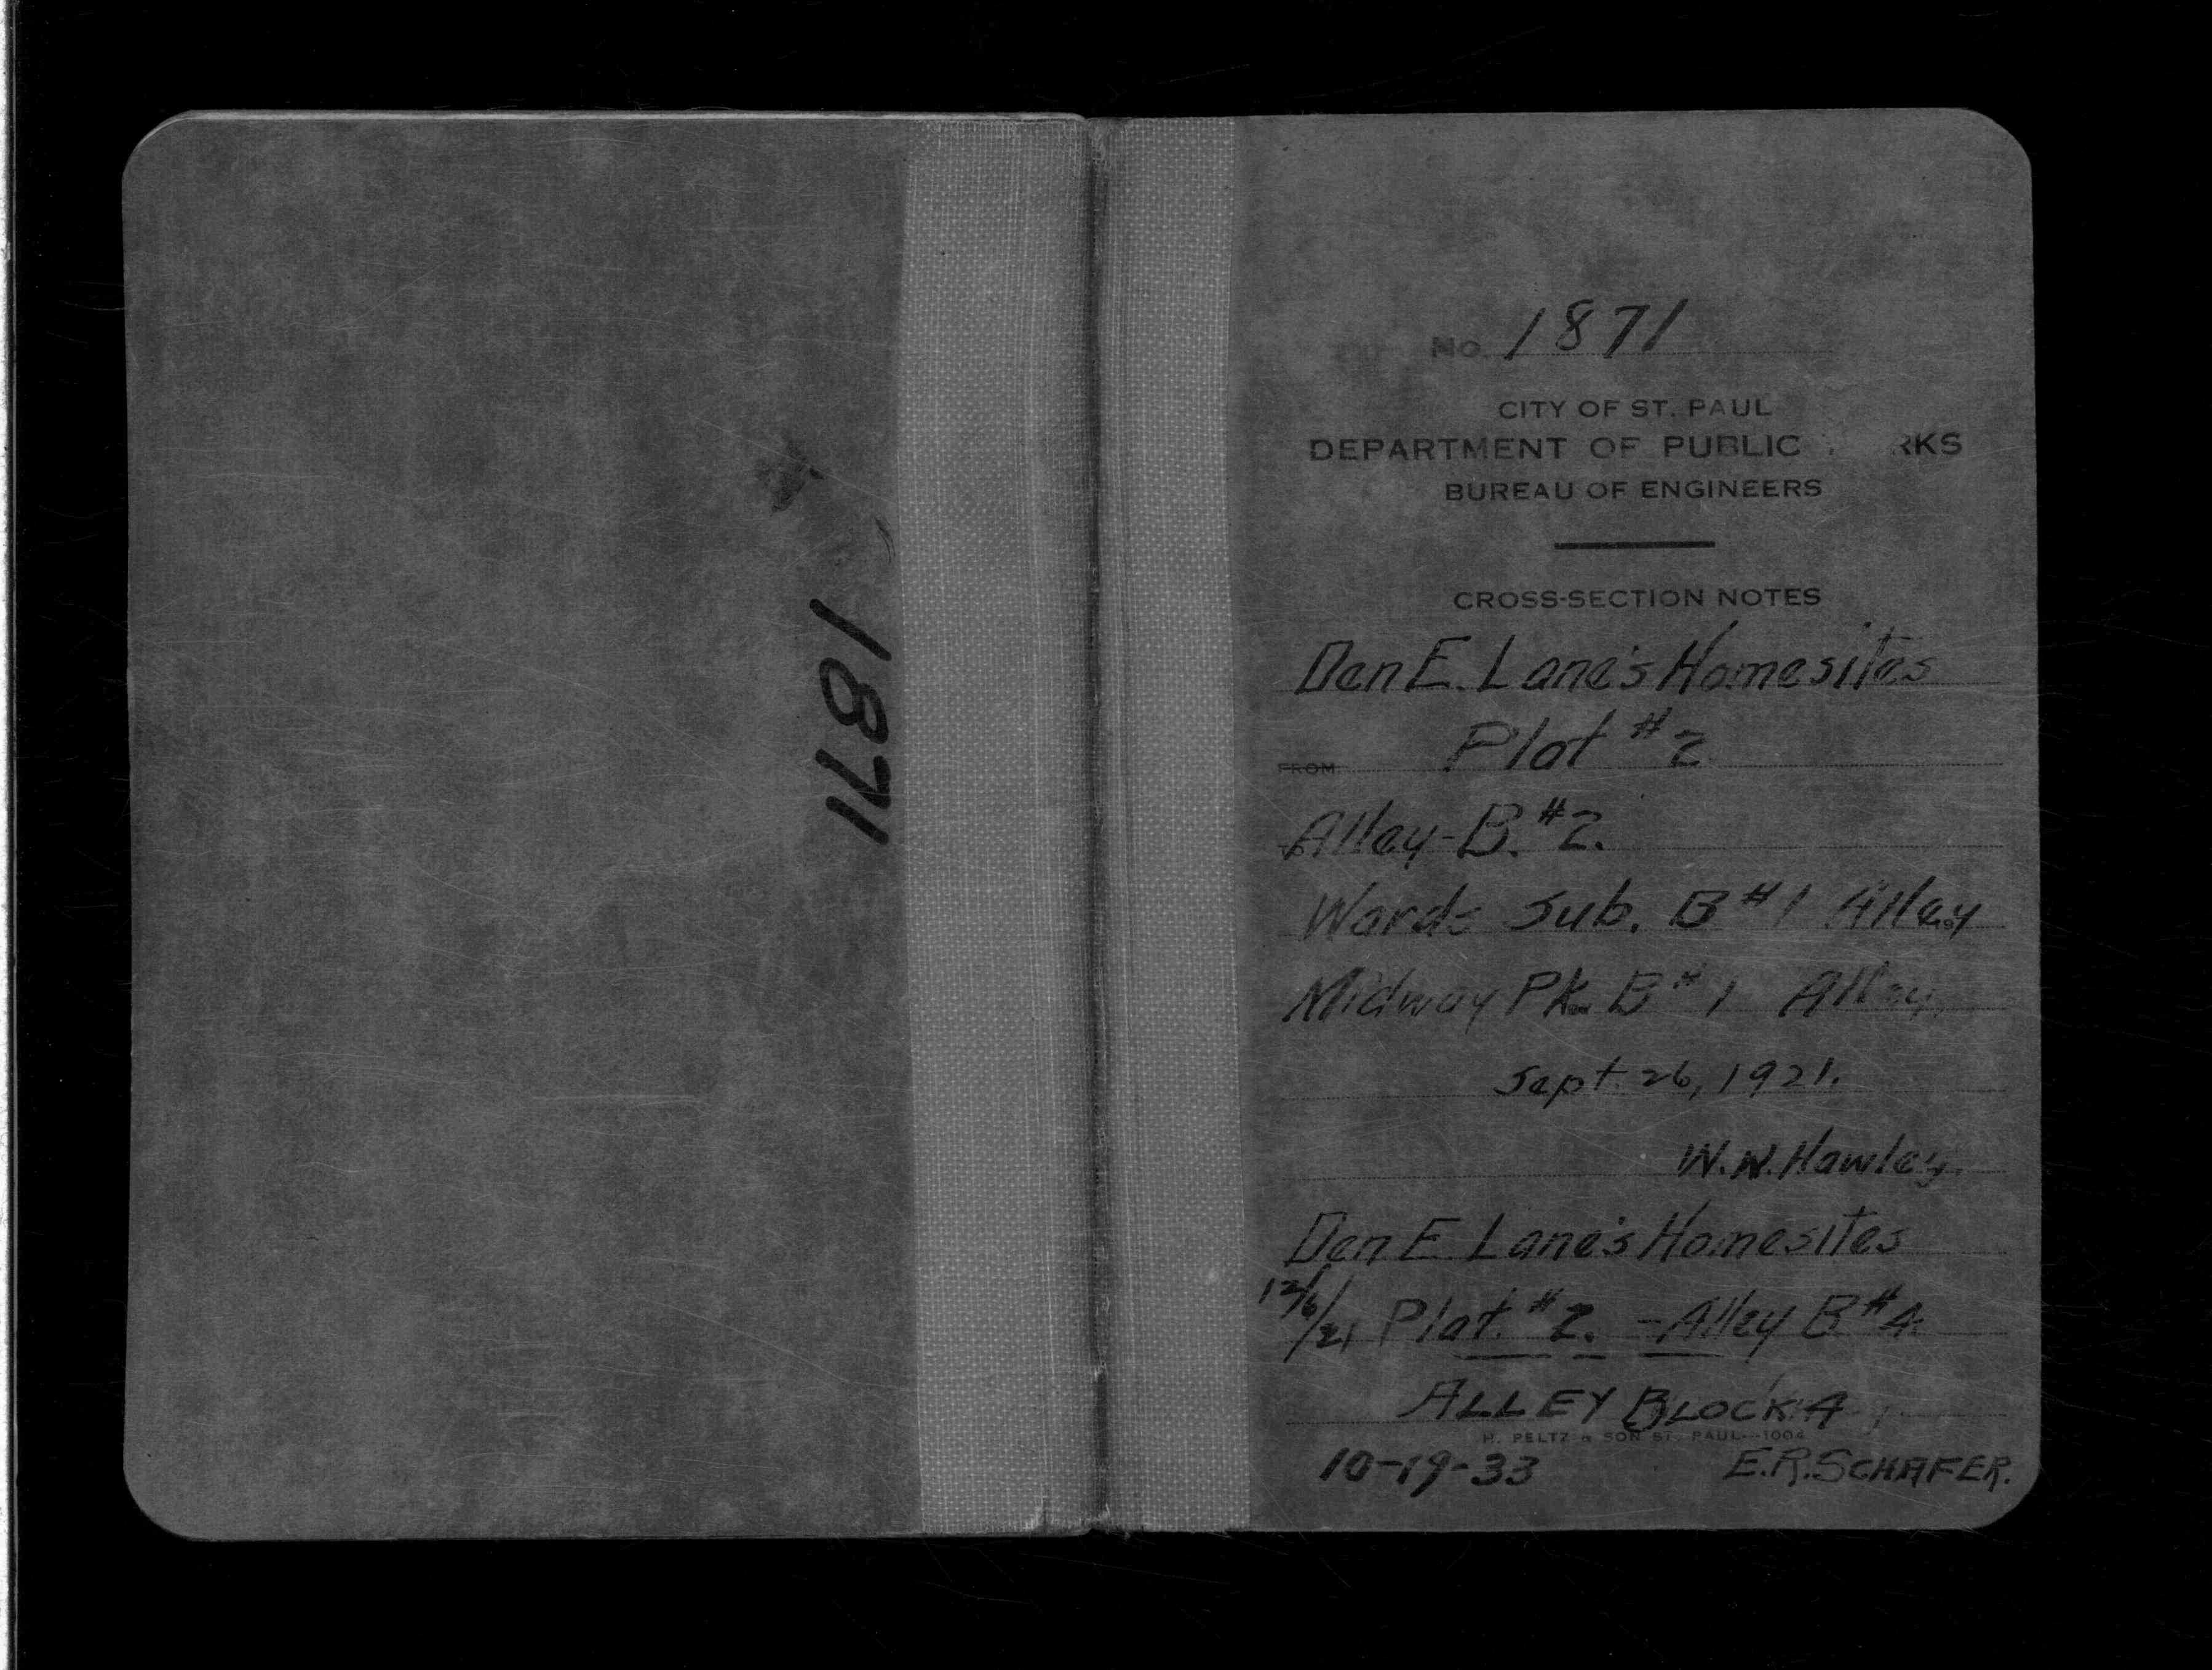 1871
No. 1871
CITY OF ST. PAUL
DEPARTMENT OF PUBLIC RKS
BUREAU OF ENGINEERS
CROSS-SECTION NOTES
Den E. Lane's Homesites
FROM Plat #2
Alley-B.#2.
Wards Sub. B#1 Alley
Midway Pk. B#1 Alley
Sept. 26, 1921.
W.W. Hawley.
Den E Lane's Homesites
12/6/21 Plat. #2. -Alley B#4.
ALLEY BLOCK 4
H. PELTZ & SON ST. PAUL-1004
10-19-33 E.R. SCHAFER.